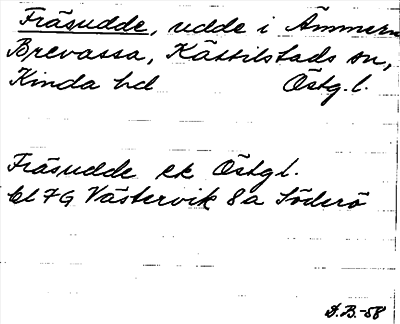 Fräsudde, udde i Ämmern
Brevassa, Kättilstads sn,
Kinda hd Östg. l.
Fräsudde ek Östgl.
bl 7G Västervik 8a Söderö
D.B.-58